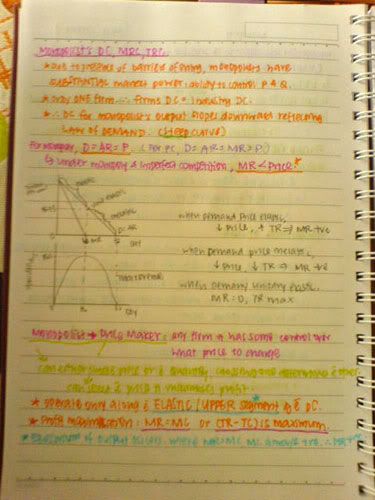 MONOPOLIST'S DC, MRC, TRC.
* Due to presence of barriers of entry, monopolists have
SUBSTANTIAL market power: ability to control P & Q.
* only ONE firm ∴ firms DC = industry DC.
* ∴ DC for monopolist's output slopes downwards reflecting
Law of DEMAND. (steep curve)
For monopoly, D = AR = P. (For PC, D = AR = MR = P.)
↳ Under monopoly & imperfect competition, MR < Price! *
elastic
inelastic
D = AR
MR
Qty
when demand price elastic,
↓ price, ↑ TR ⇒ MR +ve
when demand price inelastic,
↓ price, ↓ TR ⇒ MR
when demand unitary elastic,
MR = 0, TR max
Total revenue
Qty
Monopolist → Price Maker: any firm has some control over
what price to charge
can either price or quantity,
price maximises profit.
* operate only along ELASTIC / UPPER segment of DC.
* Profit maximisation: MR = MC or (TR - TC) is maximum.
* of output occurs where MR = MC, MC +ve, ∴ MR +ve